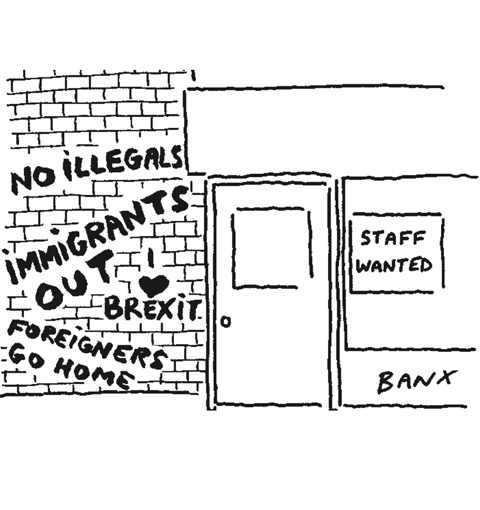 NO iLLEGALS
iMMiGRANTS
OUT
I
♥
BREXiT
FOREiGNERS
GO HOME
STAFF
WANTED
BANX